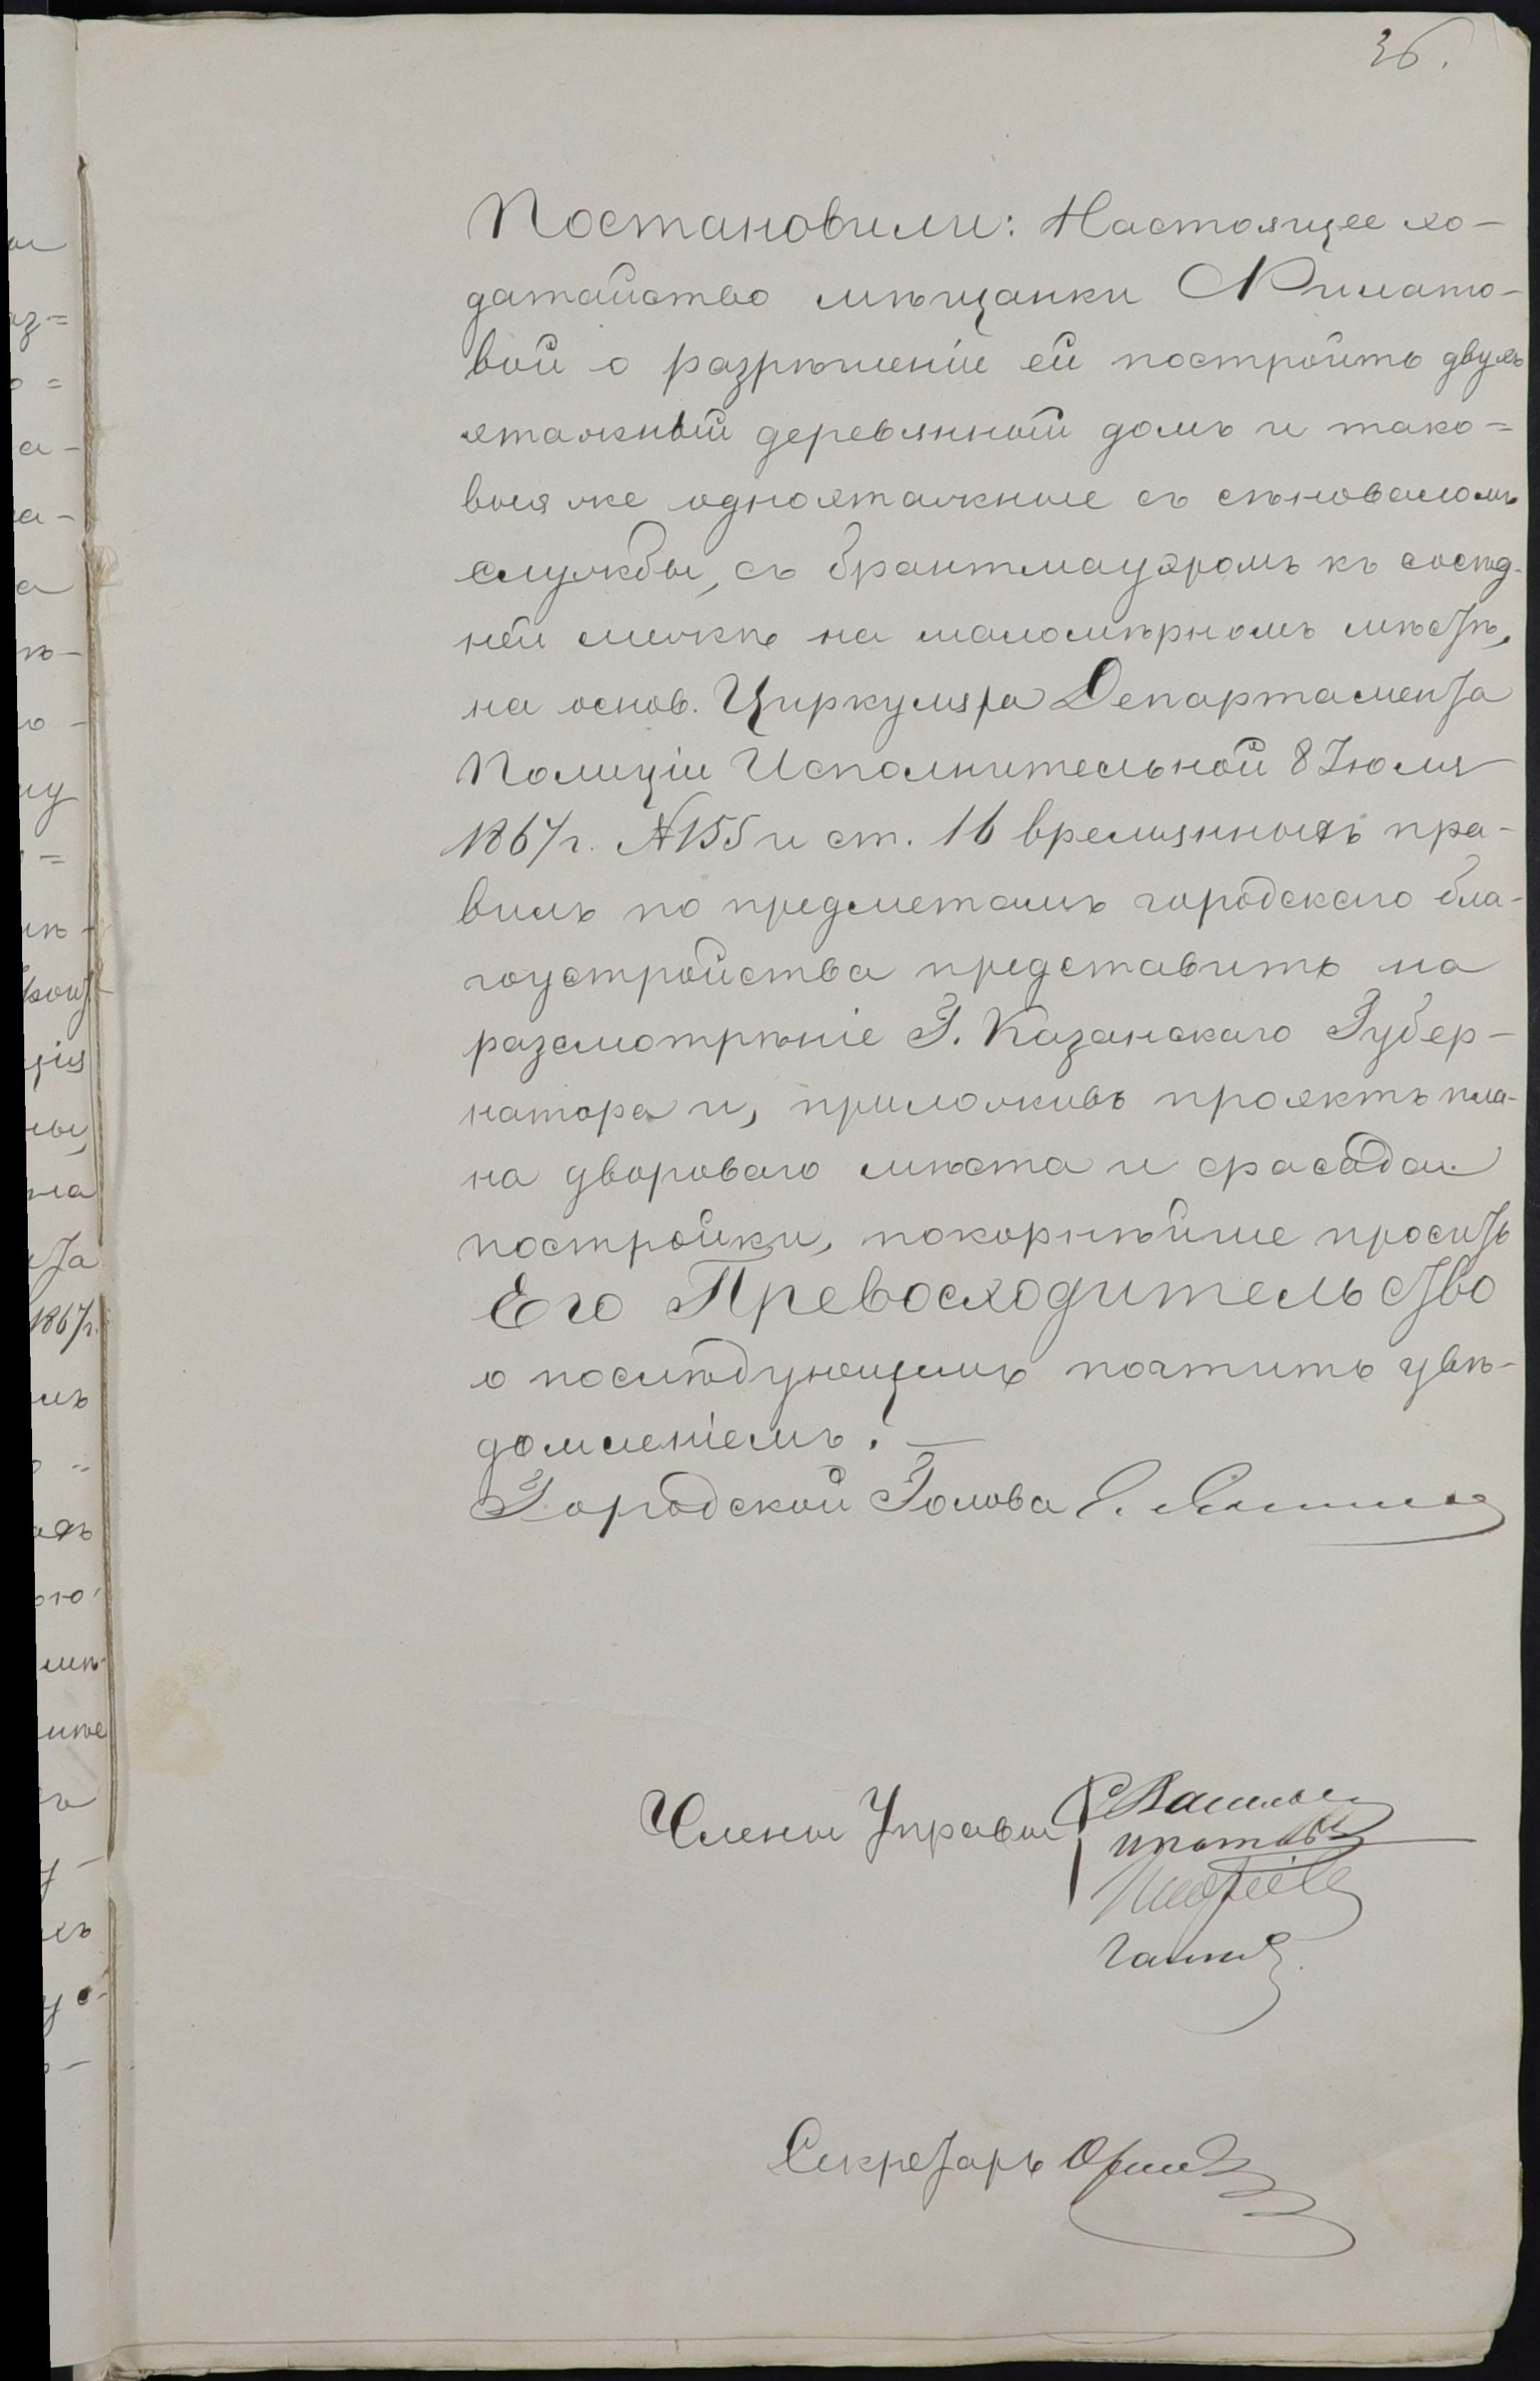 36.
Постановили: Настоящее хо-
датайство мѣщанки Филато-
вой о разрѣшеніи ей построить двухъ
этажный деревянный домъ и тако-
выя же одноэтажные съ сѣноваломъ
службы, съ брантмауэромъ къ сосѣд-
ней межѣ на маломѣрномъ мѣстѣ,
на основ. Циркуляра Департамента
Полиціи Исполнительной 8 Іюля
1867 г. №155 и ст. 16 временныхъ пра-
вилъ по предметамъ городскаго бла-
гоустройства представить на
разсмотрѣніе Г. Казанскаго Губер-
натора и, приложивъ проэктъ пла-
на двороваго мѣста и фасада
постройки, покорнѣйше просить
Его Превосходительство
о послѣдующемъ почтить увѣ-
домленіемъ. —
Городской Голова
Члены Управы
Секретарь